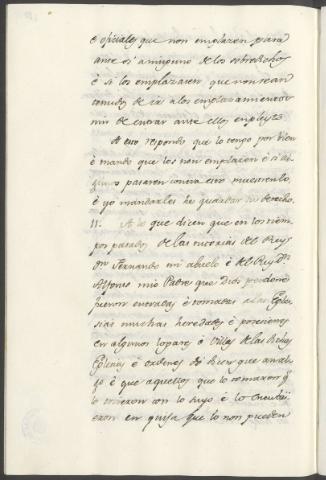 é oficiales que non emplazen para
ante si a ninguno de los sobredichos
é si los emplazaren que non sean
tenudos de ir a los emplazamientos
nin de entrar ante ellos en pleyto
A esto respondo que lo tengo por bien
é mando que los non emplazen é si al-
guno pasaren contra esto muestrenlo,
é yo mandarles he guardar su derecho.
11. A lo que dicen que en los tiem-
pos pasados de las tutorias del Rey
Dn Fernando mi abuelo é del Rey Dn
Alfonso mio Padre que Dios perdone
fueron entradas é tomadas a las Egle-
sias muchas heredades é posesiones
en algunos logares é villas de las dichas
Eglesias é ordenes do hicen que an alu-
go é que aquellos que lo tomaron q
lo ovieron con lo suyo é lo
en guisa que lo non pueden